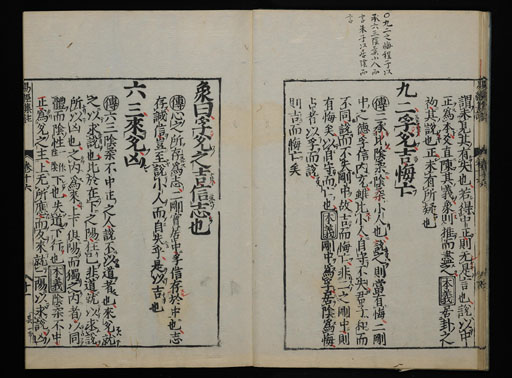 〇九二之悔程子以
承六三陰柔小人而
言朱子以居陰而
言
謂未見其有失也若得中正則无是言也說以中
正為本爻直陳其義象則推而盡之本義居卦之
初其說也正未有所疑也
九二孚兌吉悔亡
傳二承比陰柔陰柔小人也說之則當有悔二剛
中之德孚信內充雖比小人自守不失君子和而
不同說而不失剛中故吉而悔亡非二之剛中則
有悔矣以自守而亡也本義剛中為孚居陰為悔
占者以孚而說
則吉而悔亡矣
象曰孚兌之吉信志也
傳心之所存為志二剛實居中孚信存於中也志
存誠信豈至說小人而自失乎是以吉也
六三來兌凶
傳六三陰柔不中正之人說不以道者也來兌就
之以求說也比於在下之陽枉己非道就以求說
所以凶也之內為來上下俱陽而獨之內者以同
體而陰性下也失道下行也本義陰柔不中
正為兌之主上无所應而反來就二陽以求說凶